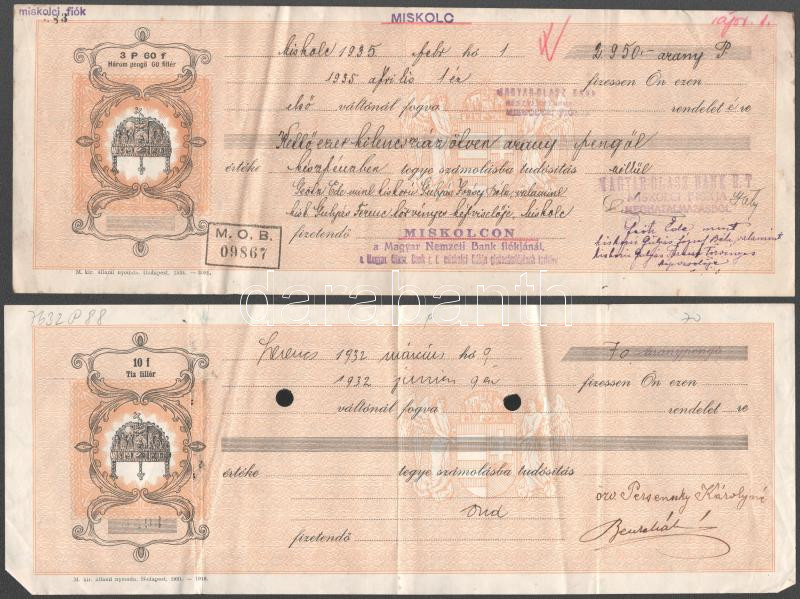 miskolci fiók
MISKOLC
3 P 60 f
Három pengő 60 fillér
Miskolc 1935 febr hó 1
2950.- arany P
1935 április 1 én
fizessen Ön ezen
MAGYAR-OLASZ BANK
MISKOLCI FIÓK
első váltónál fogva
rendelet é ve
Kettőezer kilencszáz ötven arany pengőt
értéke készpénzben tegye számolásba tudósítás nélkül
MAGYAR-OLASZ BANK R-T
MISKOLCI FIÓKJA
MEGHATALMAZÁSBÓL
kisk Gulyás Ferenc törvényes képviselője, Miskolc
M. O. B.
09867
fizetendő MISKOLCON
a Magyar Nemzeti Bank fiókjánál,
a Magyar Olasz Bank r. t. miskolci fiókja
Ede mint
kiskorú Gulyás József Béla, valamint
kiskorú Gulyás Ferenc törvényes
képviselője
M. kir. állami nyomda. Budapest, 1931. —
darabanth
7632 P 88
70
10 f
Tiz fillér
Szerencs 1932 március hó 9
70 aranypengő
1932 junius 9 én
fizessen Ön ezen
váltónál fogva
rendelet ve
értéke
tegye számolásba tudósítás
Ond
özv Persenszky Károlyné
fizetendő
M. kir. állami nyomda. Budapest, 1931. —